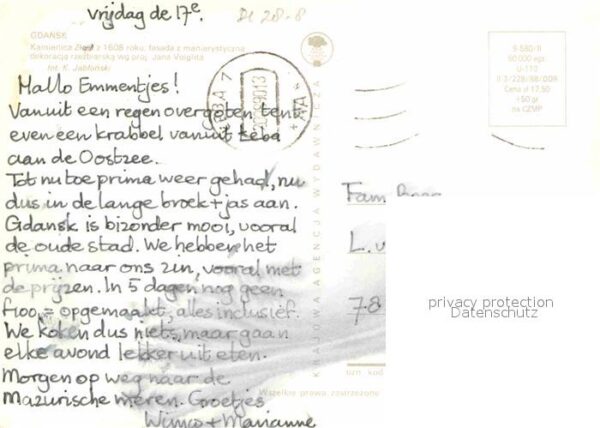 vrijdag de 17e.
Di 28-8
GDAŃSK
Kamienica z 1608 roku, fasada z manierystyczną
dekoracją rzeźbiarską wg proj. Jana Voigta
fot. K. Jabłoński
Hallo Emmentjes!
Vanuit een regen overgoten tent
even een krabbel vanuit Łeba
aan de Oostzee.
Tot nu toe prima weer gehad, nu
dus in de lange broek + jas aan.
Gdansk is bizonder mooi, vooral
de oude stad. We hebben het
prima naar ons zin, vooral met
de prijzen. In 5 dagen nog geen
f100,= opgemaakt, alles inclusief.
We koken dus niets, maar gaan
elke avond lekker uit eten.
Morgen op weg naar de
Mazurische meren. Groetjes
Wimco + Marianne
KRAJOWA AGENCJA WYDAWNICZA
Fam
L.v
78
Wszelkie prawa zastrzeżone
privacy protection
Datenschutz